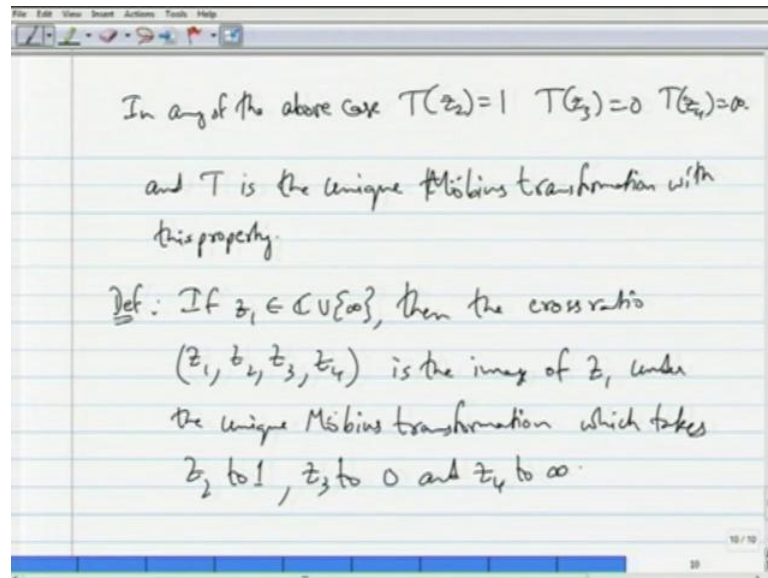 File Edit View Insert Actions Tools Help
In any of the above case T(z₂)=1 T(z₃)=0 T(z₄)=∞.
and T is the unique Möbius transformation with
this property.
Def: If z₁ ∈ ℂ∪{∞}, then the cross ratio
(z₁, z₂, z₃, z₄) is the image of z₁ under
the unique Möbius transformation which takes
z₂ to 1, z₃ to 0 and z₄ to ∞.
10 / 10
10